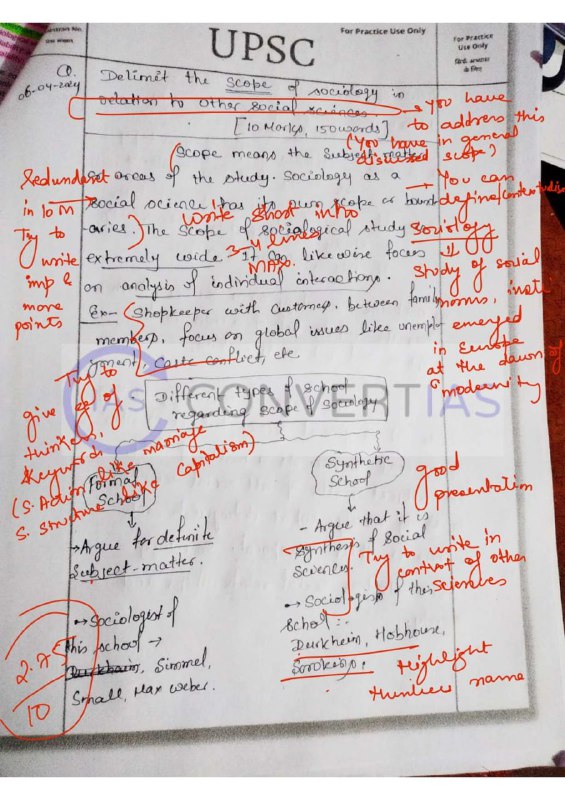 For Practice Use Only
UPSC
For Practice
Use Only
Q.
06-04-2024
Delimit the scope of sociology in
relation to other social sciences
[10 Marks, 150 words]
→ You have
to address this
(You have in general
discussed scope)
Scope means the Subject matter
areas of the study. Sociology as a
social science has its own scope or bound-
aries. The scope of sociological study is
extremely wide. It can likewise focus
on an analysis of individual interactions.
Redundant
in 10 M
Try to
write
imp &
more
points
Write short intro
3-4 lines
MAX.
→ You can
define/
Sociology
Study of social
norms, insti
emerged
in Europe
at the dawn of
modernity
Ex- Shopkeeper with Customer, between family
members, focus on global issues like unempl-
oyment, Caste conflict, etc
Try to
give eg of
thinker
Keyword
(S. Action like marriage
S. Structure like Capitalism)
CONVERTIAS
IAS
Different types of school
regarding scope of Sociology
Formal
School
→ Argue for definite
Subject-matter.
→ Sociologist of
this school →
Durkheim, Simmel,
Small, Max Weber.
Synthetic
School
- Argue that it is
synthesis of Social
Sciences.
→ Sociologist of this
School :-
Durkheim, Hobhouse,
Sorokin.
good
presentation
Try to write in
context of other
sciences
Highlight
thinker name
2.75
10